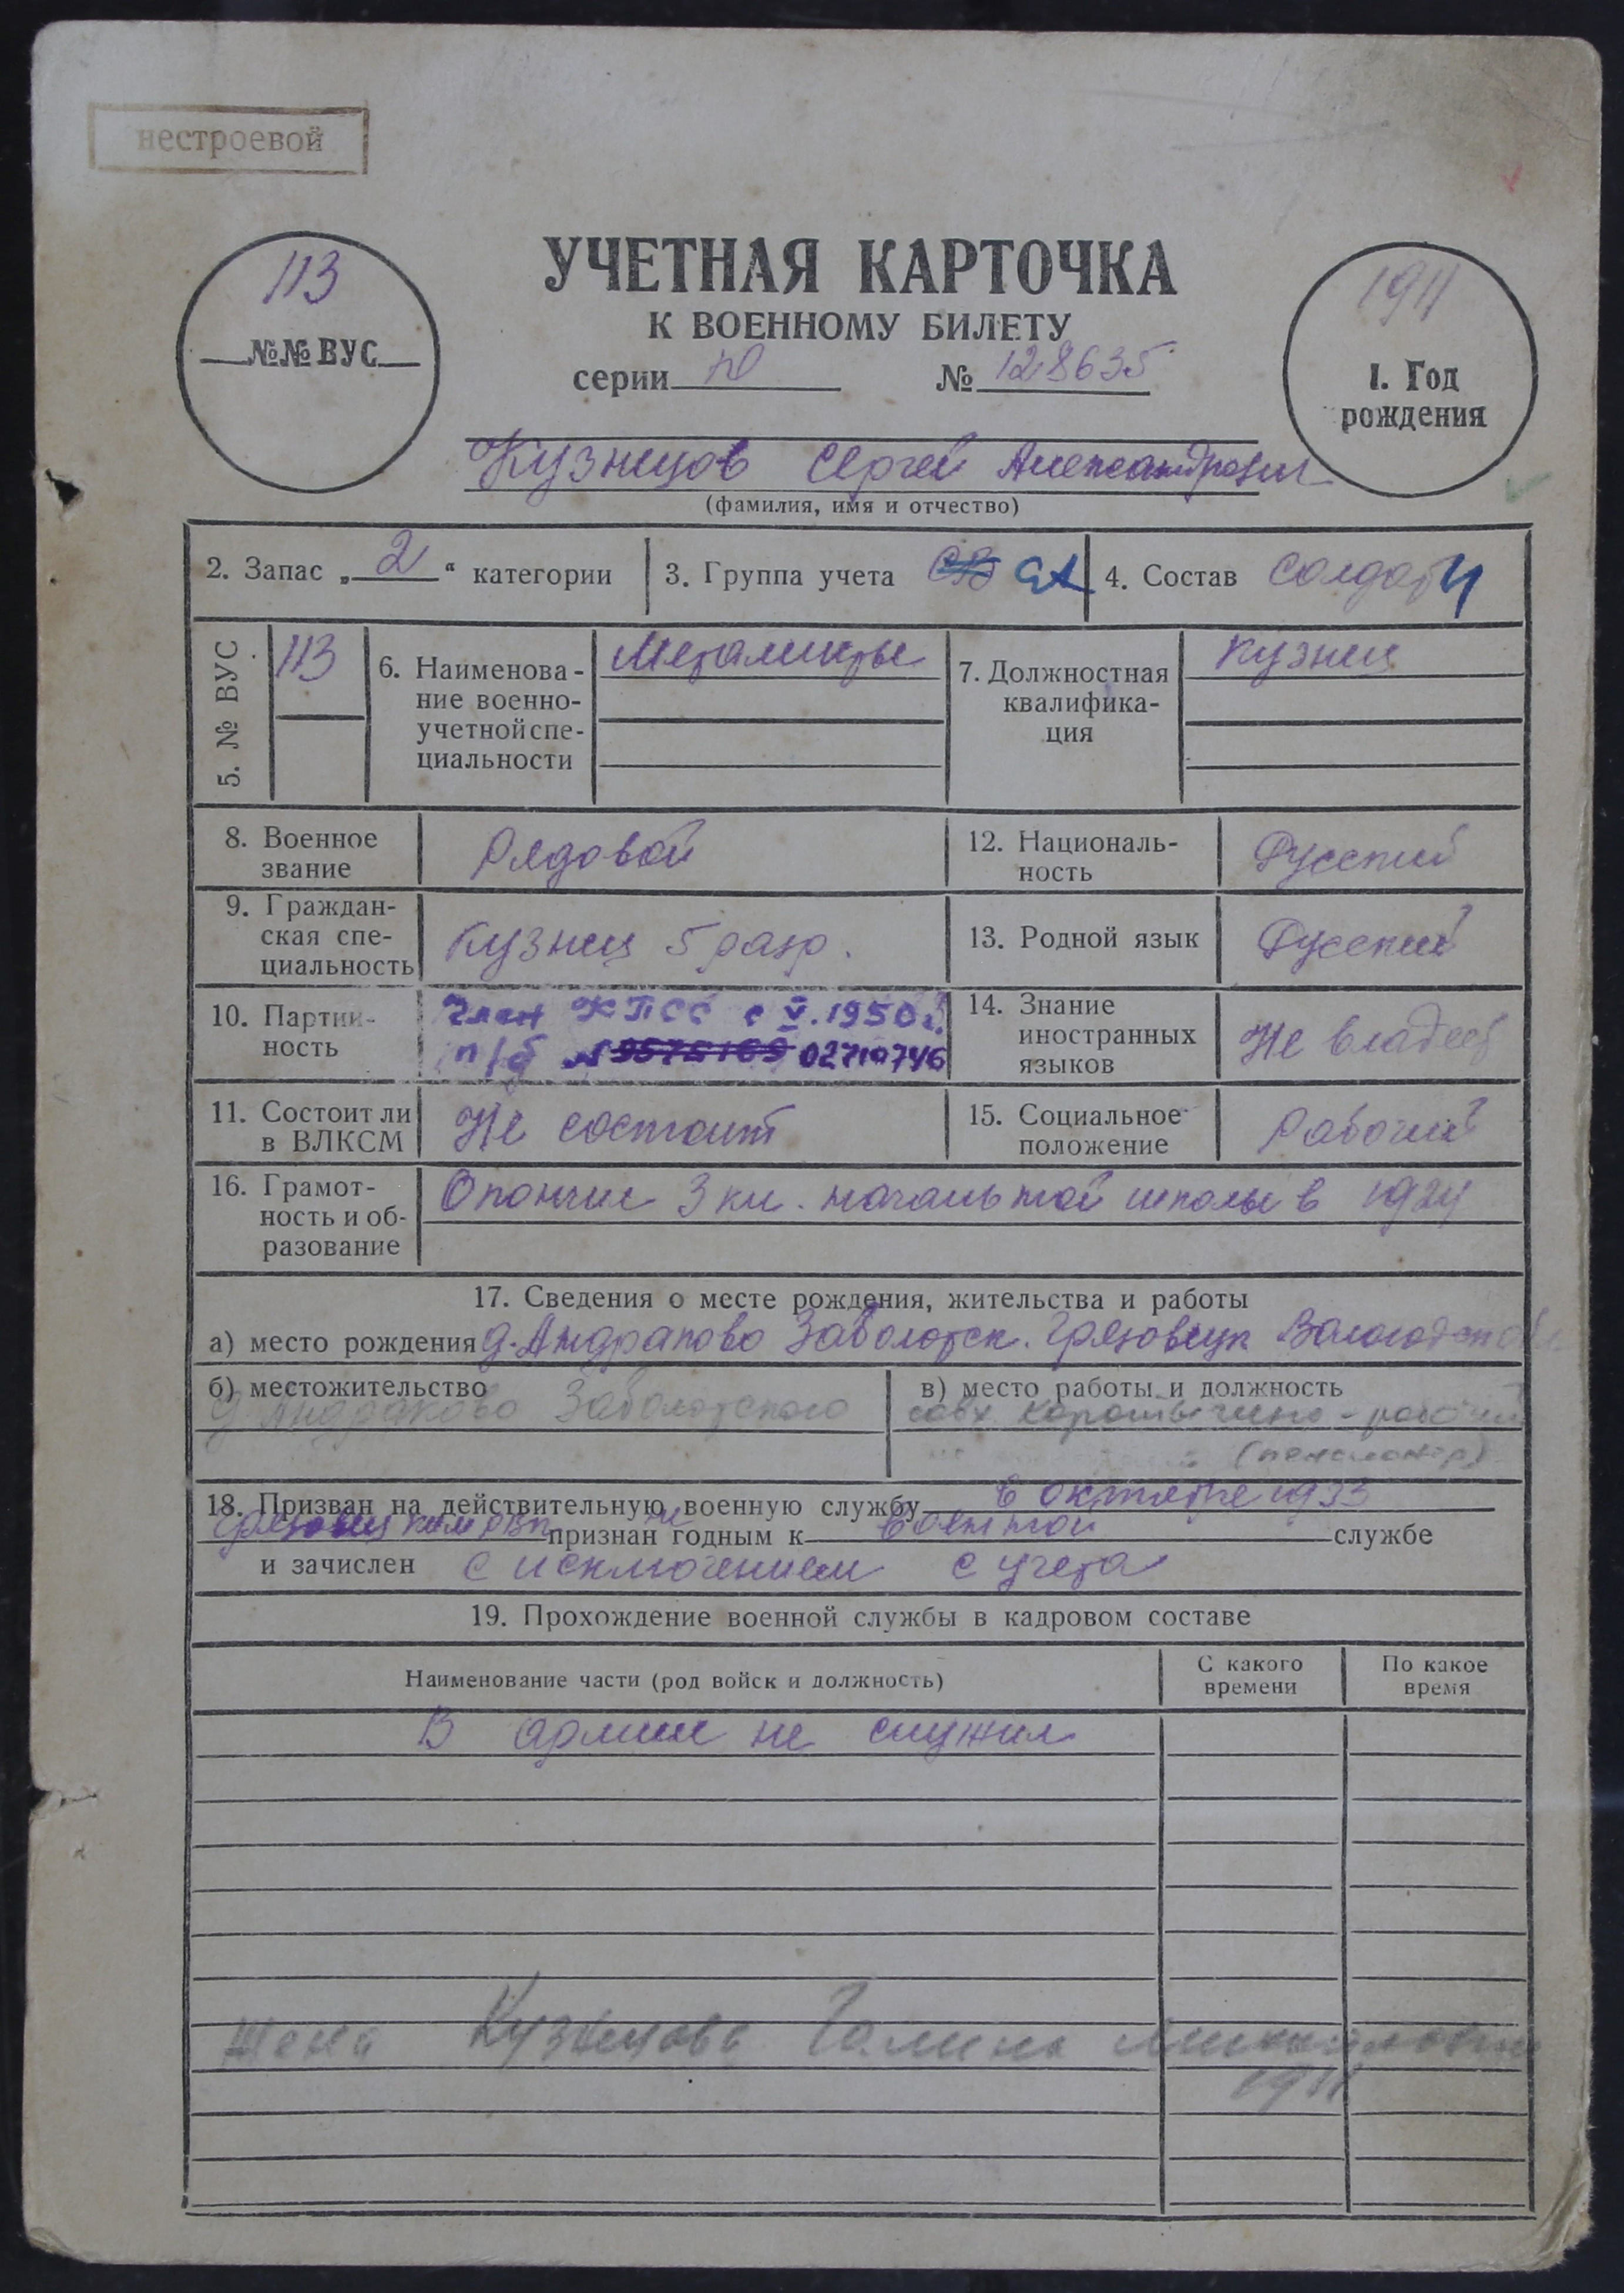 нестроевой
113
№№ ВУС
УЧЕТНАЯ КАРТОЧКА
К ВОЕННОМУ БИЛЕТУ
серии Ю № 128635
1911
1. Год
рождения
Кузнецов Сергей Александрович
(фамилия, имя и отчество)
2. Запас „ 2 “ категории
3. Группа учета СВ СА
4. Состав солдаты
5. № ВУС
113
6. Наименова-
ние военно-
учетной спе-
циальности
Металисты
7. Должностная
квалифика-
ция
Кузнец
8. Военное
звание
Рядовой
12. Националь-
ность
Русский
9. Граждан-
ская спе-
циальность
Кузнец 5 разр.
13. Родной язык
Русский
10. Партий-
ность
Член КПСС с V.1950 г.
п/б № 9575169 02710746
14. Знание
иностранных
языков
Не владеет
11. Состоит ли
в ВЛКСМ
Не состоит
15. Социальное
положение
Рабочий
16. Грамот-
ность и об-
разование
Окончил 3 кл. начальной школы в 1924
17. Сведения о месте рождения, жительства и работы
а) место рождения д. Андраково Заболотск. Грязовецк Вологодской
б) местожительство
д Андраково Заболотского
в) место работы и должность
совх рабочий
(пенсионер)
18. Призван на действительную военную службу в октябре 1933
Грязовецким РВК признан не годным к военной службе
и зачислен с исключением с учета
19. Прохождение военной службы в кадровом составе
Наименование части (род войск и должность)
С какого
времени
По какое
время
В армии не служил
Жена Кузнецова Галина Михайловна
1911